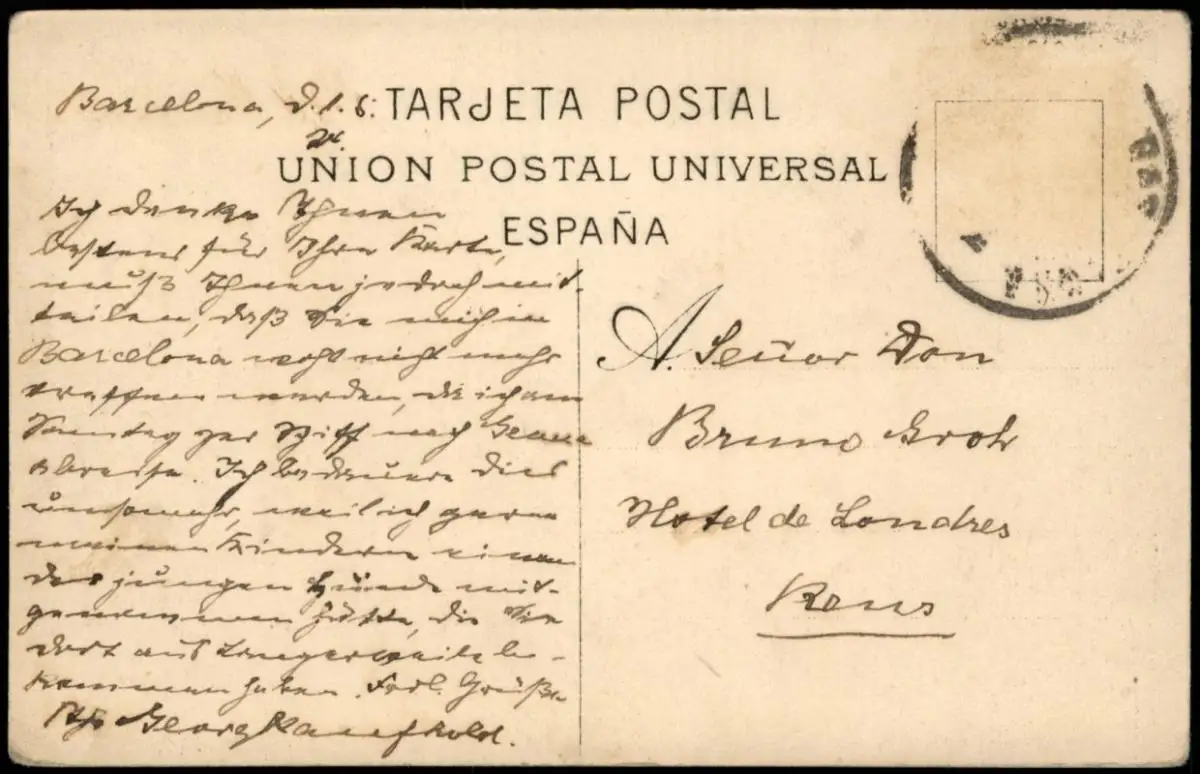 Barcelona, d. 1. 6.
TARJETA POSTAL
UNION POSTAL UNIVERSAL
ESPAÑA
Ich danke Ihnen
bestens für Ihre Karte,
muß Ihnen jedoch mit-
teilen, daß Sie mich in
Barcelona wohl nicht mehr
treffen werden, da ich am
Samstag per Schiff nach Genua
abreise. Ich bedauere dies
umsomehr, weil ich gerne
meinen Kindern einen
der jungen Hunde mit-
genommen hätte, die Sie
dort aus Langerweile be-
kommen haben. Frdl. Grüße
Georg Kaufhold.
A. Señor Don
Bruno Groh
Hotel de Londres
Reus